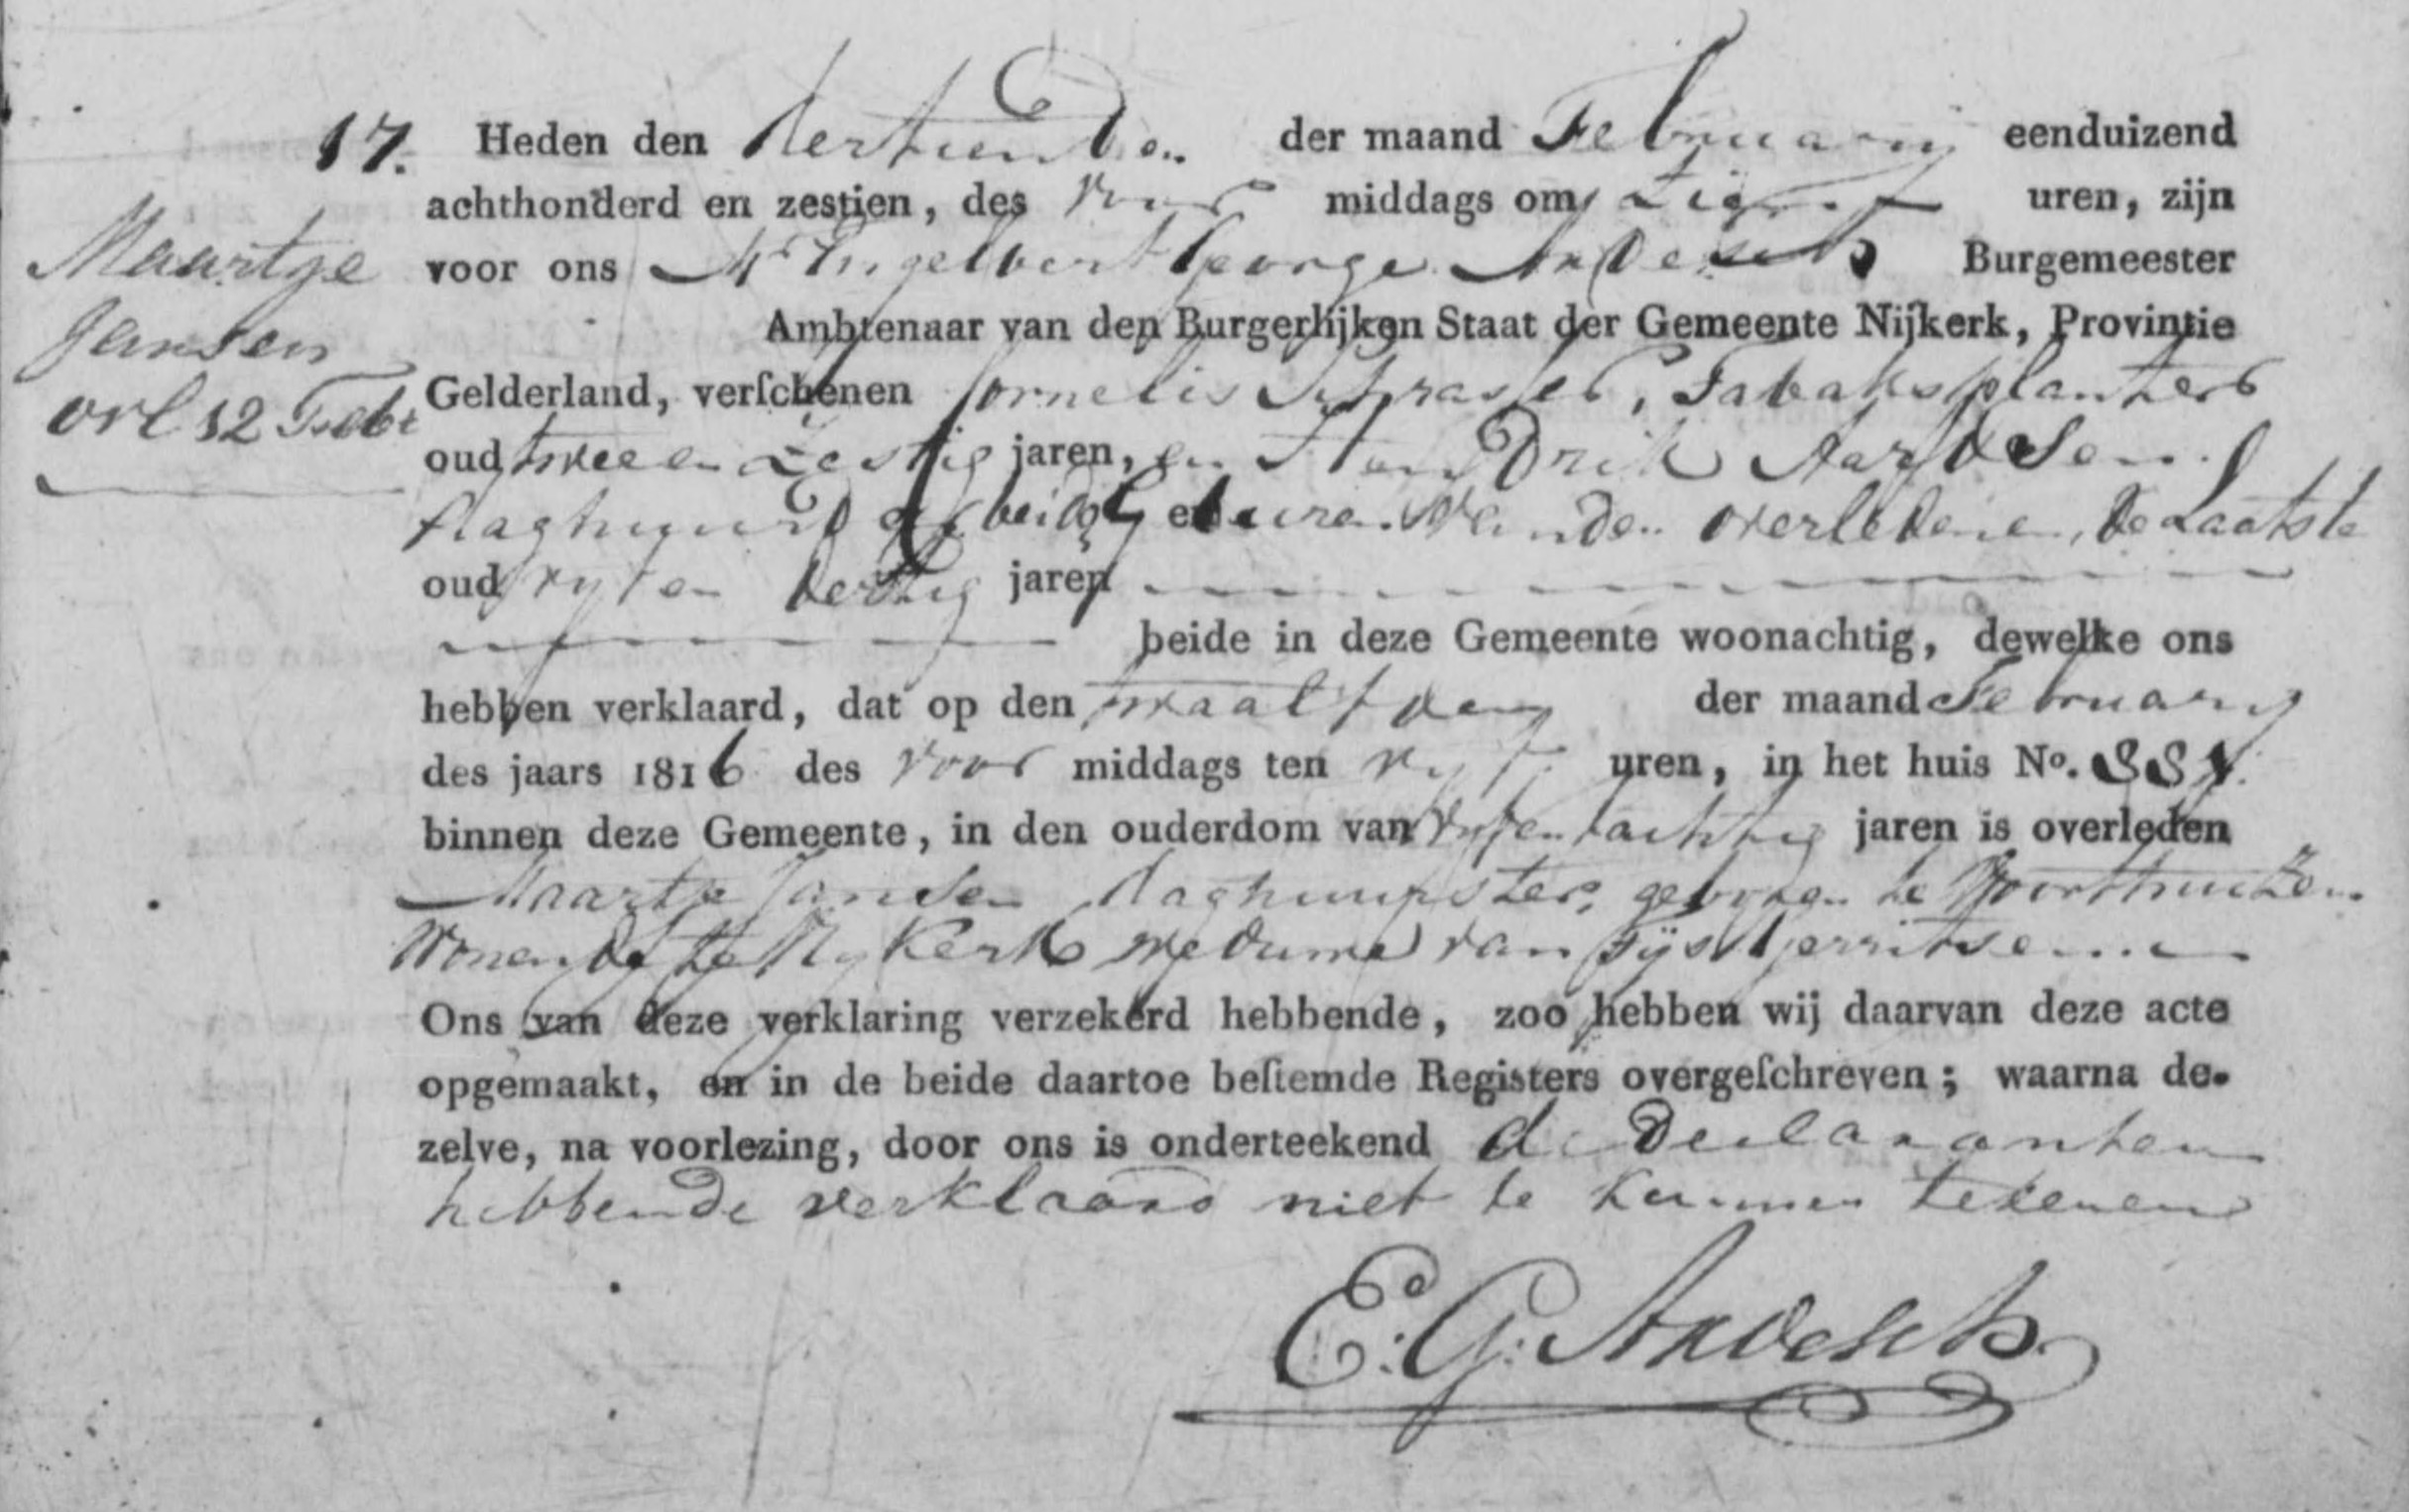 17. Heden den dertienden der maand February eenduizend
achthonderd en zestien, des voor middags om tien uren, zijn
Maartje voor ons Mr Engelbert George Ardesch Burgemeester
Jansen Ambtenaar van den Burgerlijken Staat der Gemeente Nijkerk, Provintie
ovl 12 Febr Gelderland, verſchenen Cornelis Schrasser, Tabaksplanter
oud twee en Zestig jaren, en Hendrik Aartsen
daghuurder beide gebuuren van den overledene, de Laatste
oud vyf en dertig jaren
beide in deze Gemeente woonachtig, dewelke ons
hebben verklaard, dat op den twaalfden der maand February
des jaars 1816 des voor middags ten vyf uren, in het huis No.
binnen deze Gemeente, in den ouderdom van vyfentachtig jaren is overleden
Maartje Jansen daghuurster, geboren te Voorthuizen
Wonende te Nykerk weduwe van Gijs Gerritsen
Ons van deze verklaring verzekerd hebbende, zoo hebben wij daarvan deze acte
opgemaakt, en in de beide daartoe beſtemde Registers overgeſchreven; waarna de-
zelve, na voorlezing, door ons is onderteekend de Declaranten
hebbende verklaard niet te kunnen tekenen
E: G: Ardesch